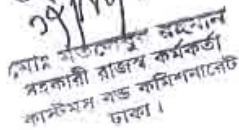 মোঃ রহমান
সহকারী রাজস্ব কর্মকর্তা
কাস্টমস বন্ড কমিশনারেট
ঢাকা।